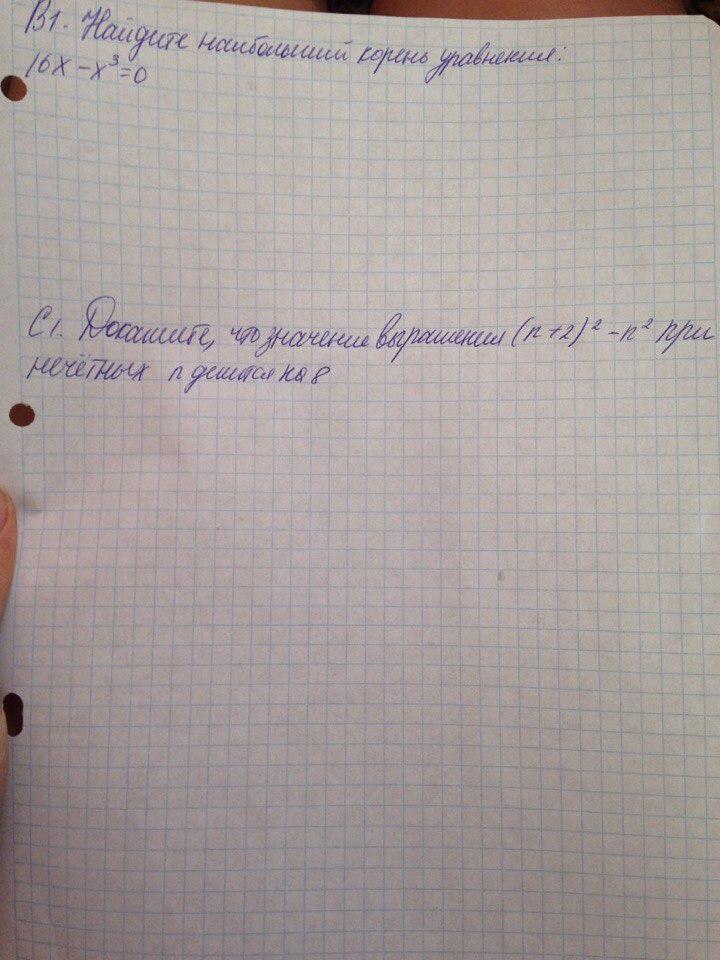 В1. Найдите наибольший корень уравнения:
16x - x³ = 0
С1. Докажите, что значение выражения (n+2)² - n² при
нечётных n делится на 8